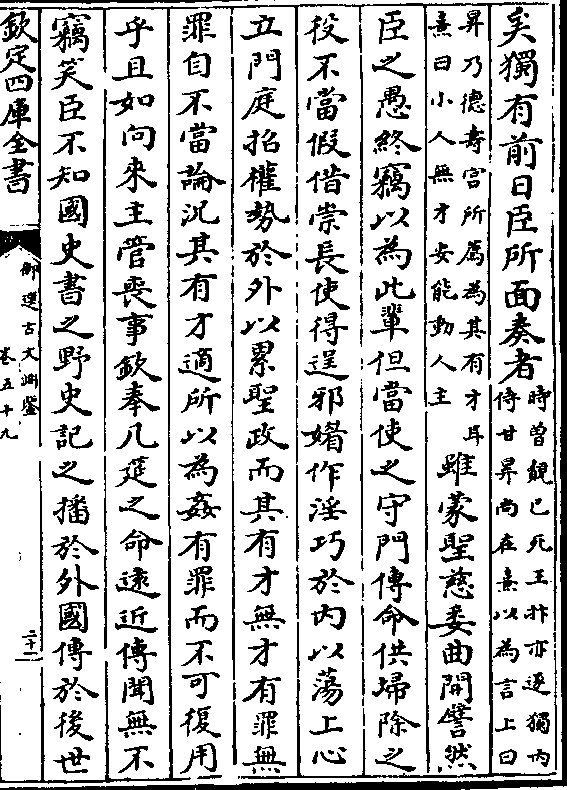 矣獨有前日臣所面奏者
時曽覿已死王抃亦逐獨内
侍甘昇尚在熹以為言上曰
昇乃徳壽宫所薦為其有才耳
熹曰小人無才安能動人主
雖蒙聖慈委曲開譬然
臣之愚終竊以為此輩但當使之守門傳命供埽除之
役不當假借崇長使得逞邪媚作淫巧於内以蕩上心
立門庭招權勢於外以累聖政而其有才無才有罪無
罪自不當論况其有才適所以為姦有罪而不可復用
乎且如向來主管喪事欽奉几筵之命逺近傳聞無不
竊笑臣不知國史書之野史記之播於外國傳於後世
欽定四庫全書
御選古文淵鑒
卷五十九